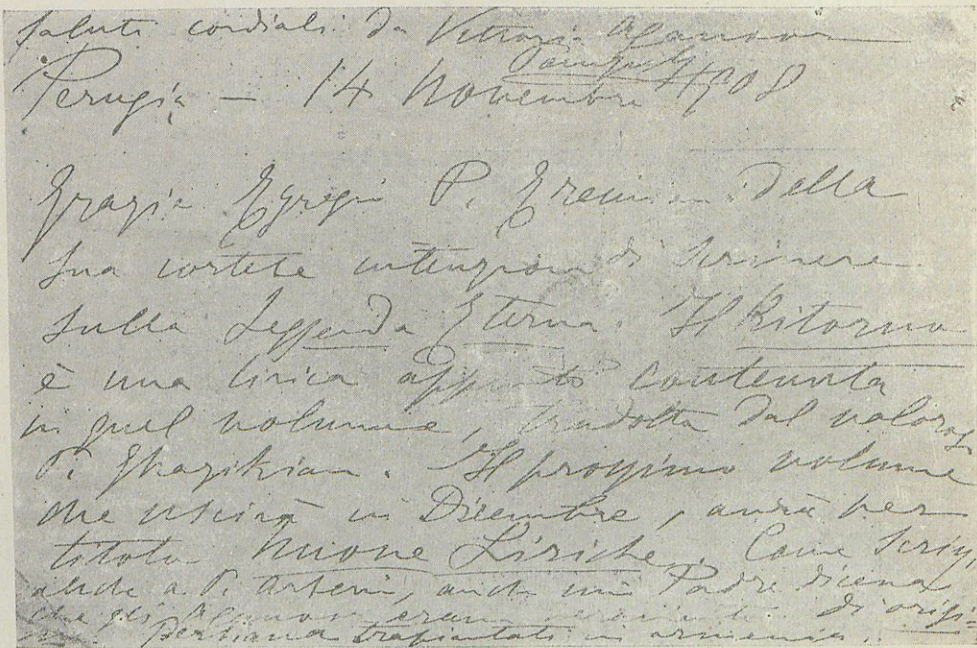 Saluti cordiali da Vittoria Aganoor
Pompilj
Perugia — 14 Novembre 1908
Grazie Egregio P. Eremian della
sua cortese intenzione di scrivere
sulla Leggenda Eterna. Il Ritorno
è una lirica appunto contenuta
in quel volume, tradotta dal valoroso
P. Ghazikian. Il prossimo volume
che uscirà in Dicembre, avrà per
titolo Nuove Liriche. Come scrissi
anche a P. Arsenio, anche mio Padre diceva
che gli Aganoor erano di origi=
ne persiana trapiantati in Armenia.